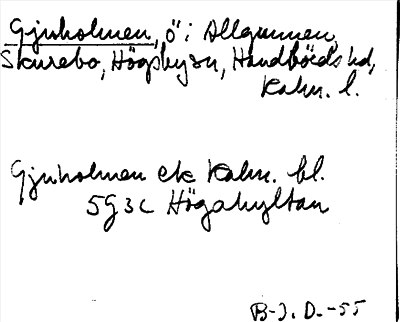 Gjuholmen, ö i Allgunnen,
Skurebo, Högsby sn, Handbörds hd,
Kalm. l.
Gjuholmen ek Kalm. bl.
5G3c Högahyltan
B-J. D. -55